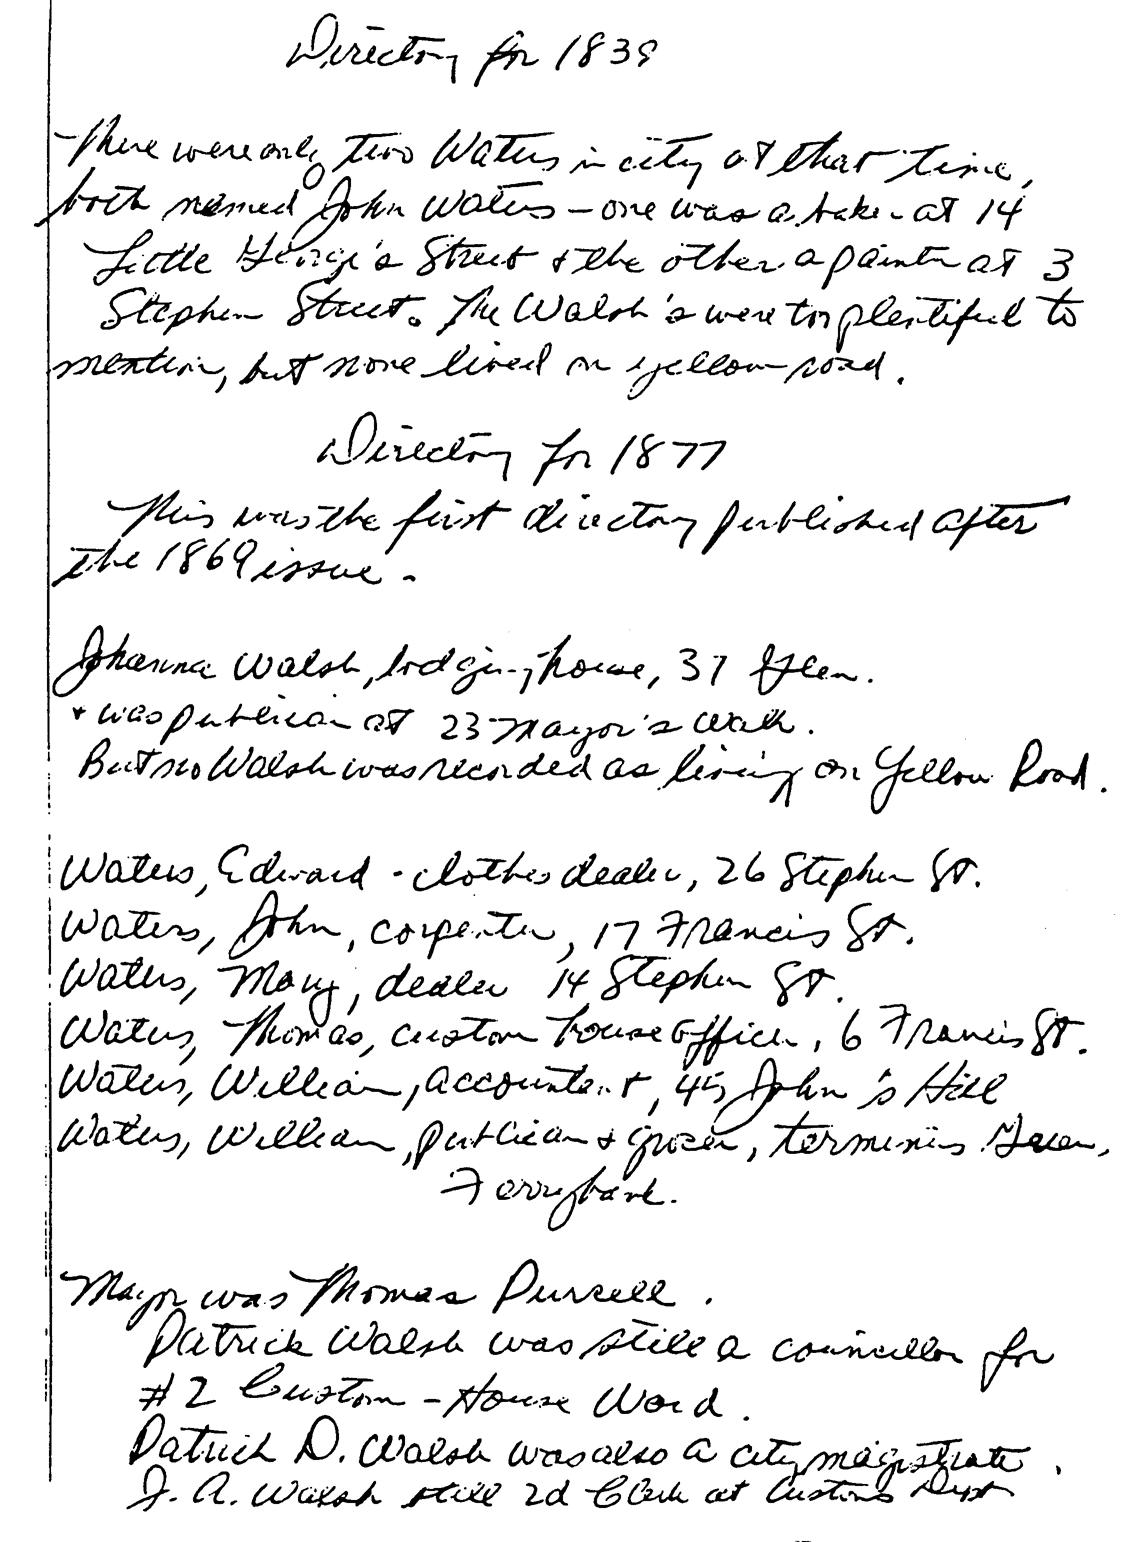 Directory for 1839
There were only two Waters in city at that time,
both named John Waters – one was a baker at 14
Little George's Street & the other a painter at 3
Stephen Street. The Walsh's were too plentiful to
mention, but none lived on yellow road.
Directory for 1877
This was the first directory published after
the 1869 issue.
Johanna Walsh, lodging-house, 37 Glen.
& was publican at 23 Mayor's Walk.
But no Walsh was recorded as living on Yellow Road.
Waters, Edward - clothes dealer, 26 Stephen St.
Waters, John, carpenter, 17 Francis St.
Waters, Mary, dealer 14 Stephen St.
Waters, Thomas, custom house officer, 6 Francis St.
Waters, William, accountant, 45 John's Hill
Waters, William, publican & grocer, terminus
Ferrybank.
Mayor was Thomas Purcell.
Patrick Walsh was still a councillor for
#2 Custom-House Ward.
Patrick D. Walsh was also a city magistrate.
J. A. Walsh still 2d Clerk at Customs Dept